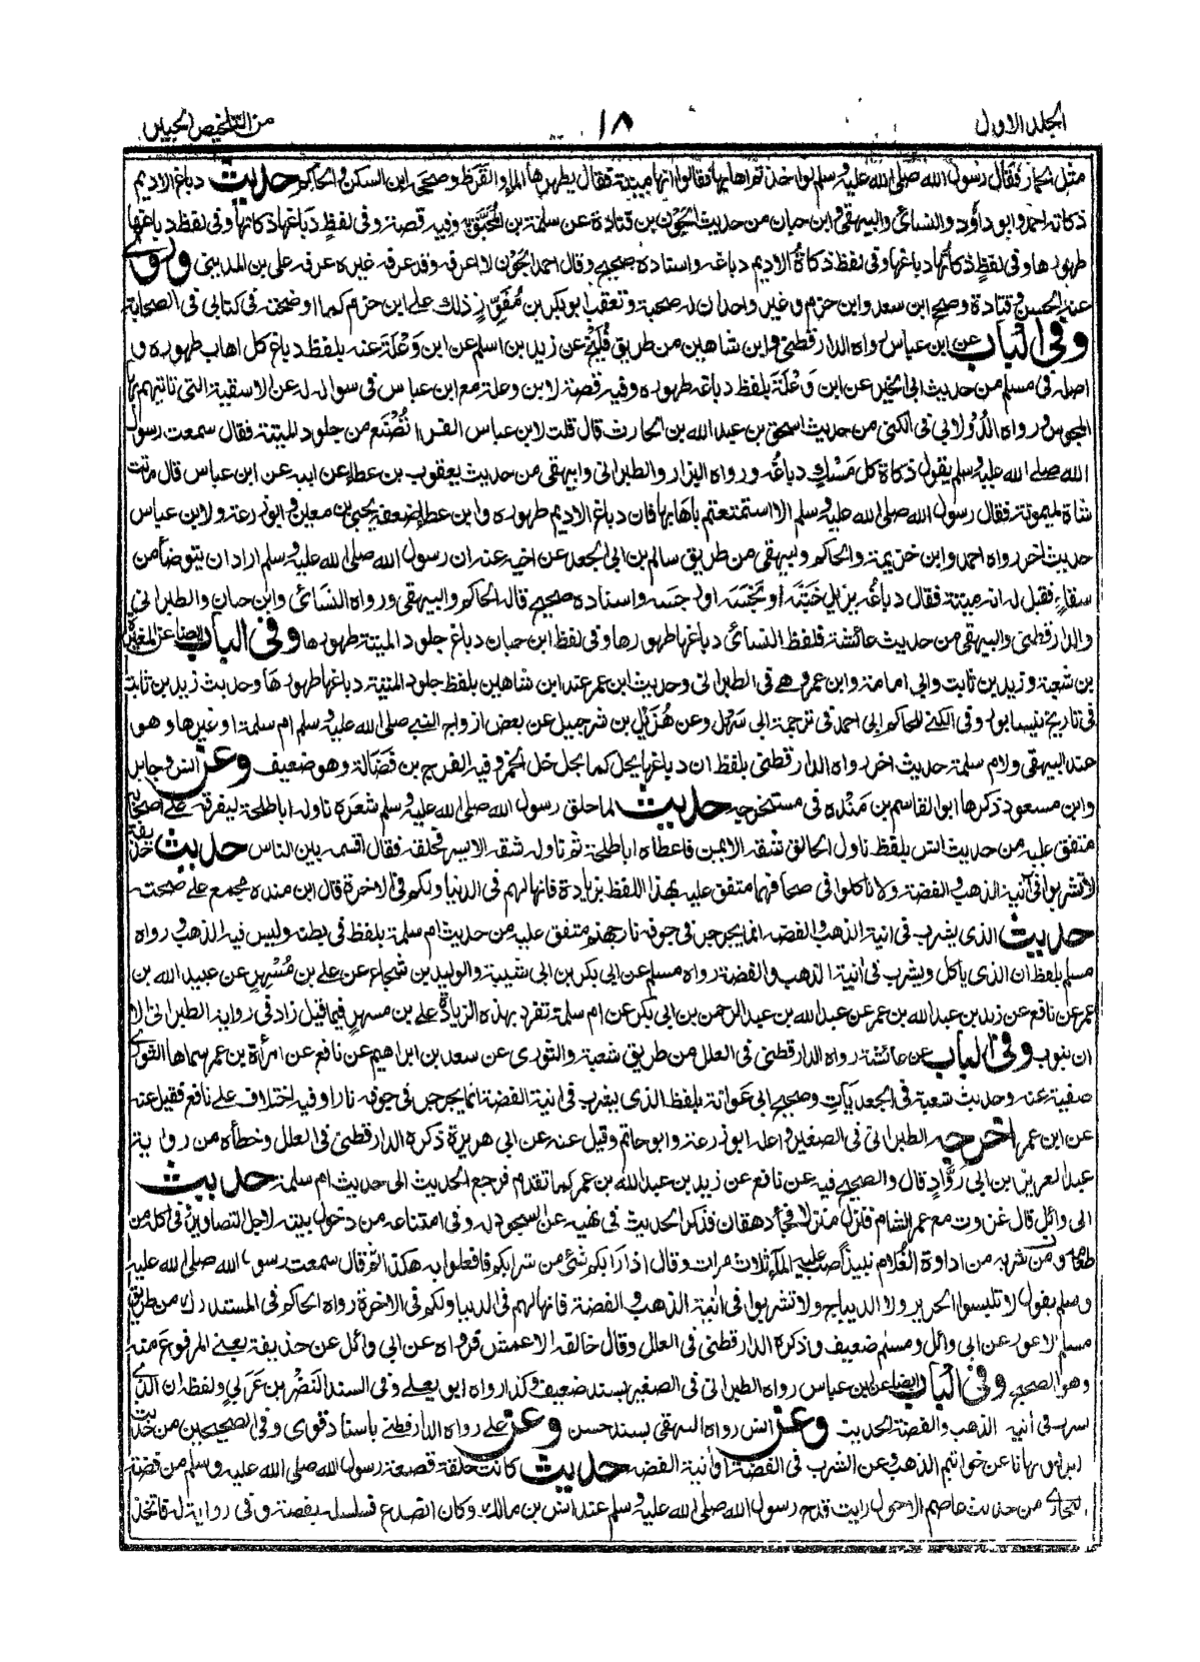 المجلد الاول
١٨
من التلخيص الحبير
مثل الحمار فقال رسول الله صلى الله عليه وسلم لو اخذتم اهابها فقالوا انها ميتة فقال يطهرها الماء والقرظ وصححه ابن السكن والحاكم حديث دباغ الاديم
ذكاته احمد وابو داؤد والنسائى والبيهقى وابن حبان من حديث الجون بن قتادة عن سلمة بن المحبق به وفيه قصة وفى لفظ دباغها ذكاتها وفى لفظ دباغها
طهورها وفى لفظ ذكاتها دباغها وفى لفظ ذكاة الاديم دباغه واسناده صحيح وقال احمد الجون لا اعرفه وقد عرفه غيره عرفه على بن المدينى وروى
عنه الحسن وقتادة وصحح ابن سعد وابن حزم وغير واحد ان له صحبة وتعقب ابو بكر بن مفوز ذلك على ابن حزم كما اوضحته فى كتابى فى الصحابة
وفى الباب عن ابن عباس رواه الدارقطنى وابن شاهين من طريق فليح عن زيد بن اسلم عن ابن وعلة عنه بلفظ دباغ كل اهاب طهوره و
اصله فى مسلم من حديث ابى الخير عن ابن وعلة بلفظ دباغه طهوره وفيه قصة لابن وعلة مع ابن عباس فى سواله له عن الاسقية التى تاتيهم بها
المجوس ورواه الدولابى فى الكنى من حديث اسحق بن عبد الله بن الحارث قال قلت لابن عباس الفراء نصنع من جلود الميتة فقال سمعت رسول
الله صلى الله عليه وسلم يقول ذكاة كل مسك دباغه ورواه البزار والطبرانى والبيهقى من حديث يعقوب بن عطاء عن ابيه عن ابن عباس قال ماتت
شاة لميمونة فقال رسول الله صلى الله عليه وسلم الا استمتعتم باهابها فان دباغ الاديم طهوره وابن عطاء ضعفه يحيى بن معين وابو زرعة ولابن عباس
حديث اخر رواه احمد وابن خزيمة والحاكم والبيهقى من طريق سالم بن ابى الجعد عن اخيه عنه ان رسول الله صلى الله عليه وسلم اراد ان يتوضأ من
سقاء فقيل له انه ميتة فقال دباغه يزيل خبثه او نجسه او رجسه واسناده صحيح قاله الحاكم والبيهقى ورواه النسائى وابن حبان والطبرانى
والدارقطنى والبيهقى من حديث عائشة فلفظ النسائى دباغها طهورها وفى لفظ ابن حبان دباغ جلود الميتة طهورها وفى الباب ايضا عن المغيرة
بن شعبة وزيد بن ثابت وابى امامة وابن عمر وهى فى الطبرانى وحديث ابن عمر عند ابن شاهين بلفظ جلود الميتة دباغها طهورها وحديث زيد بن ثابت
فى تاريخ نيسابور وفى الكنى للحاكم ابى احمد فى ترجمة ابى سهل وعن هزيل بن شرحبيل عن بعض ازواج النبى صلى الله عليه وسلم ام سلمة او غيرها وهو
عند البيهقى ولام سلمة حديث اخر رواه الدارقطنى بلفظ ان دباغها يحل كما يحل خل الخمر وفيه الفرج بن فضالة وهو ضعيف وعن انس وجابر
وابن مسعود ذكرها ابو القاسم بن منده فى مستخرجه حديث لما حلق رسول الله صلى الله عليه وسلم شعره ناوله ابا طلحة ليفرقه على اصحابه
متفق عليه من حديث انس بلفظ ناول الحالق شقه الايمن فاعطاه ابا طلحة ثم ناوله شقه الايسر فحلقه فقال اقسمه بين الناس حديث حذيفة
لا تشربوا فى آنية الذهب والفضة ولا تاكلوا فى صحافهما متفق عليه بهذا اللفظ بزيادة فانها لهم فى الدنيا ولكم فى الاخرة قال ابن منده مجمع على صحته
حديث الذى يشرب فى انية الذهب والفضة انما يجرجر فى جوفه نار جهنم متفق عليه من حديث ام سلمة بلفظ فى بطنه وليس فيه الذهب ورواه
مسلم بلفظ ان الذى ياكل ويشرب فى انية الذهب والفضة رواه مسلم عن ابى بكر بن ابى شيبة والوليد بن شجاع عن على بن مسهر عن عبيد الله بن
عمر عن نافع عن زيد بن عبد الله بن عمر عن عبد الله بن عبد الرحمن بن ابى بكر عن ام سلمة تفرد بهذه الزيادة على بن مسهر فيما قيل زاد فى رواية الطبرانى الا
ان يتوب وفى الباب عن عائشة رواه الدارقطنى فى العلل من طريق شعبة والثورى عن سعد بن ابراهيم عن نافع عن امرأة بن عمر سماها الثورى
صفية عنه وحديث شعبة فى الجعديات وصحيح ابى عوانة بلفظ الذى يشرب فى انية الفضة انما يجرجر فى جوفه نارا وفيه اختلاف على نافع فقيل عنه
عن ابن عمر اخرجه الطبرانى فى الصغير واعله ابو زرعة وابو حاتم وقيل عنه عن ابى هريرة ذكره الدارقطنى فى العلل وخطأه من رواية
عبد العزيز بن ابى رواد قال والصحيح فيه عن نافع عن زيد بن عبد الله بن عمر كما تقدم فرجع الحديث الى حديث ام سلمة حديث
ابى وائل قال غزوت مع عمر الشام فنزل منزلا فجاء دهقان فذكر الحديث فى نهيه عن السجود له وفى امتناعه من دخول بيته لاجل التصاوير وفى اكله من
طعامه ومن شربه من اداوة الغلام نبيذا صب عليه الماء ثلاث مرات وقال اذا رابكم شئ من شرابكم فافعلوا به هكذا ثم قال سمعت رسول الله صلى الله عليه
وسلم يقول لا تلبسوا الحرير ولا الديباج ولا تشربوا فى انية الذهب والفضة فانها لهم فى الدنيا ولكم فى الاخرة رواه الحاكم فى المستدرك من طريق
مسلم الاعور عن ابى وائل ومسلم ضعيف وذكره الدارقطنى فى العلل وقال خالفه الاعمش فرواه عن ابى وائل عن حذيفة يعنى المرفوع منه
وهو الصحيح وفى الباب ايضا عن ابن عباس رواه الطبرانى فى الصغير بسند ضعيف وكذا رواه ابو يعلى وفى السند النضر بن عربى ولفظه ان الذى
يشرب فى آنية الذهب والفضة الحديث وعن انس رواه البيهقى بسند حسن وعن على رواه الدارقطنى باسناد قوى وفى الصحيحين من حديث
البراء نهانا عن خواتيم الذهب وعن الشرب فى الفضة او آنية الفضة حديث كانت حلقة قصعة رسول الله صلى الله عليه وسلم من فضة
البخارى من حديث عاصم الاحول رايت قدح رسول الله صلى الله عليه وسلم عند انس بن مالك وكان انصدع فسلسله بفضة وفى رواية له فاتخذ